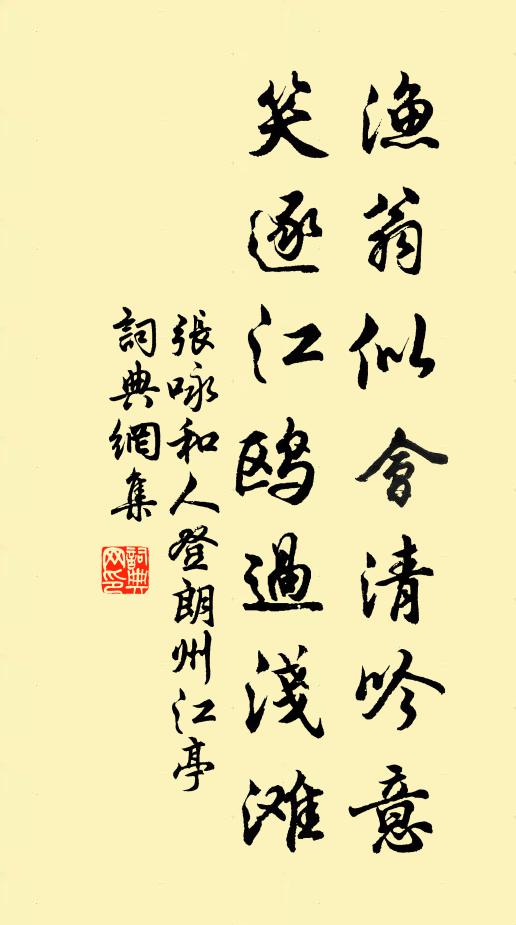 渔翁似會清吟意
笑逐江鸥過淺滩
張咏和人登朗州江亭
詞典網集
詞典网印